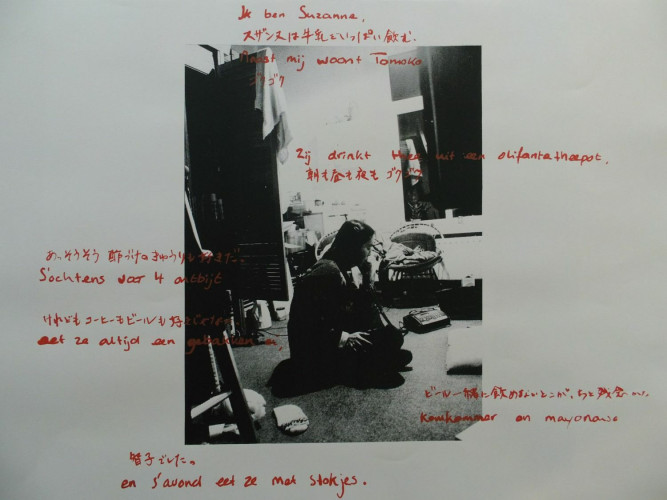 Ik ben Suzanne.
スザンヌは牛乳をいっぱい飲む.
Naast mij woont Tomoko
ゴクゴク
Zij drinkt thee uit een olifantetheepot.
朝も昼も夜も ゴクゴク
あっ、そうそう 酢づけのきゅうりも好きだ.
S'ochtens voor 't ontbijt
けれどもコーヒーもビールも
eet ze altijd een gebakken ei.
ビール一緒に飲めないとこが、ちょっと残念
Komkommer en mayonaise
智子でした。
en s'avond eet ze met stokjes.